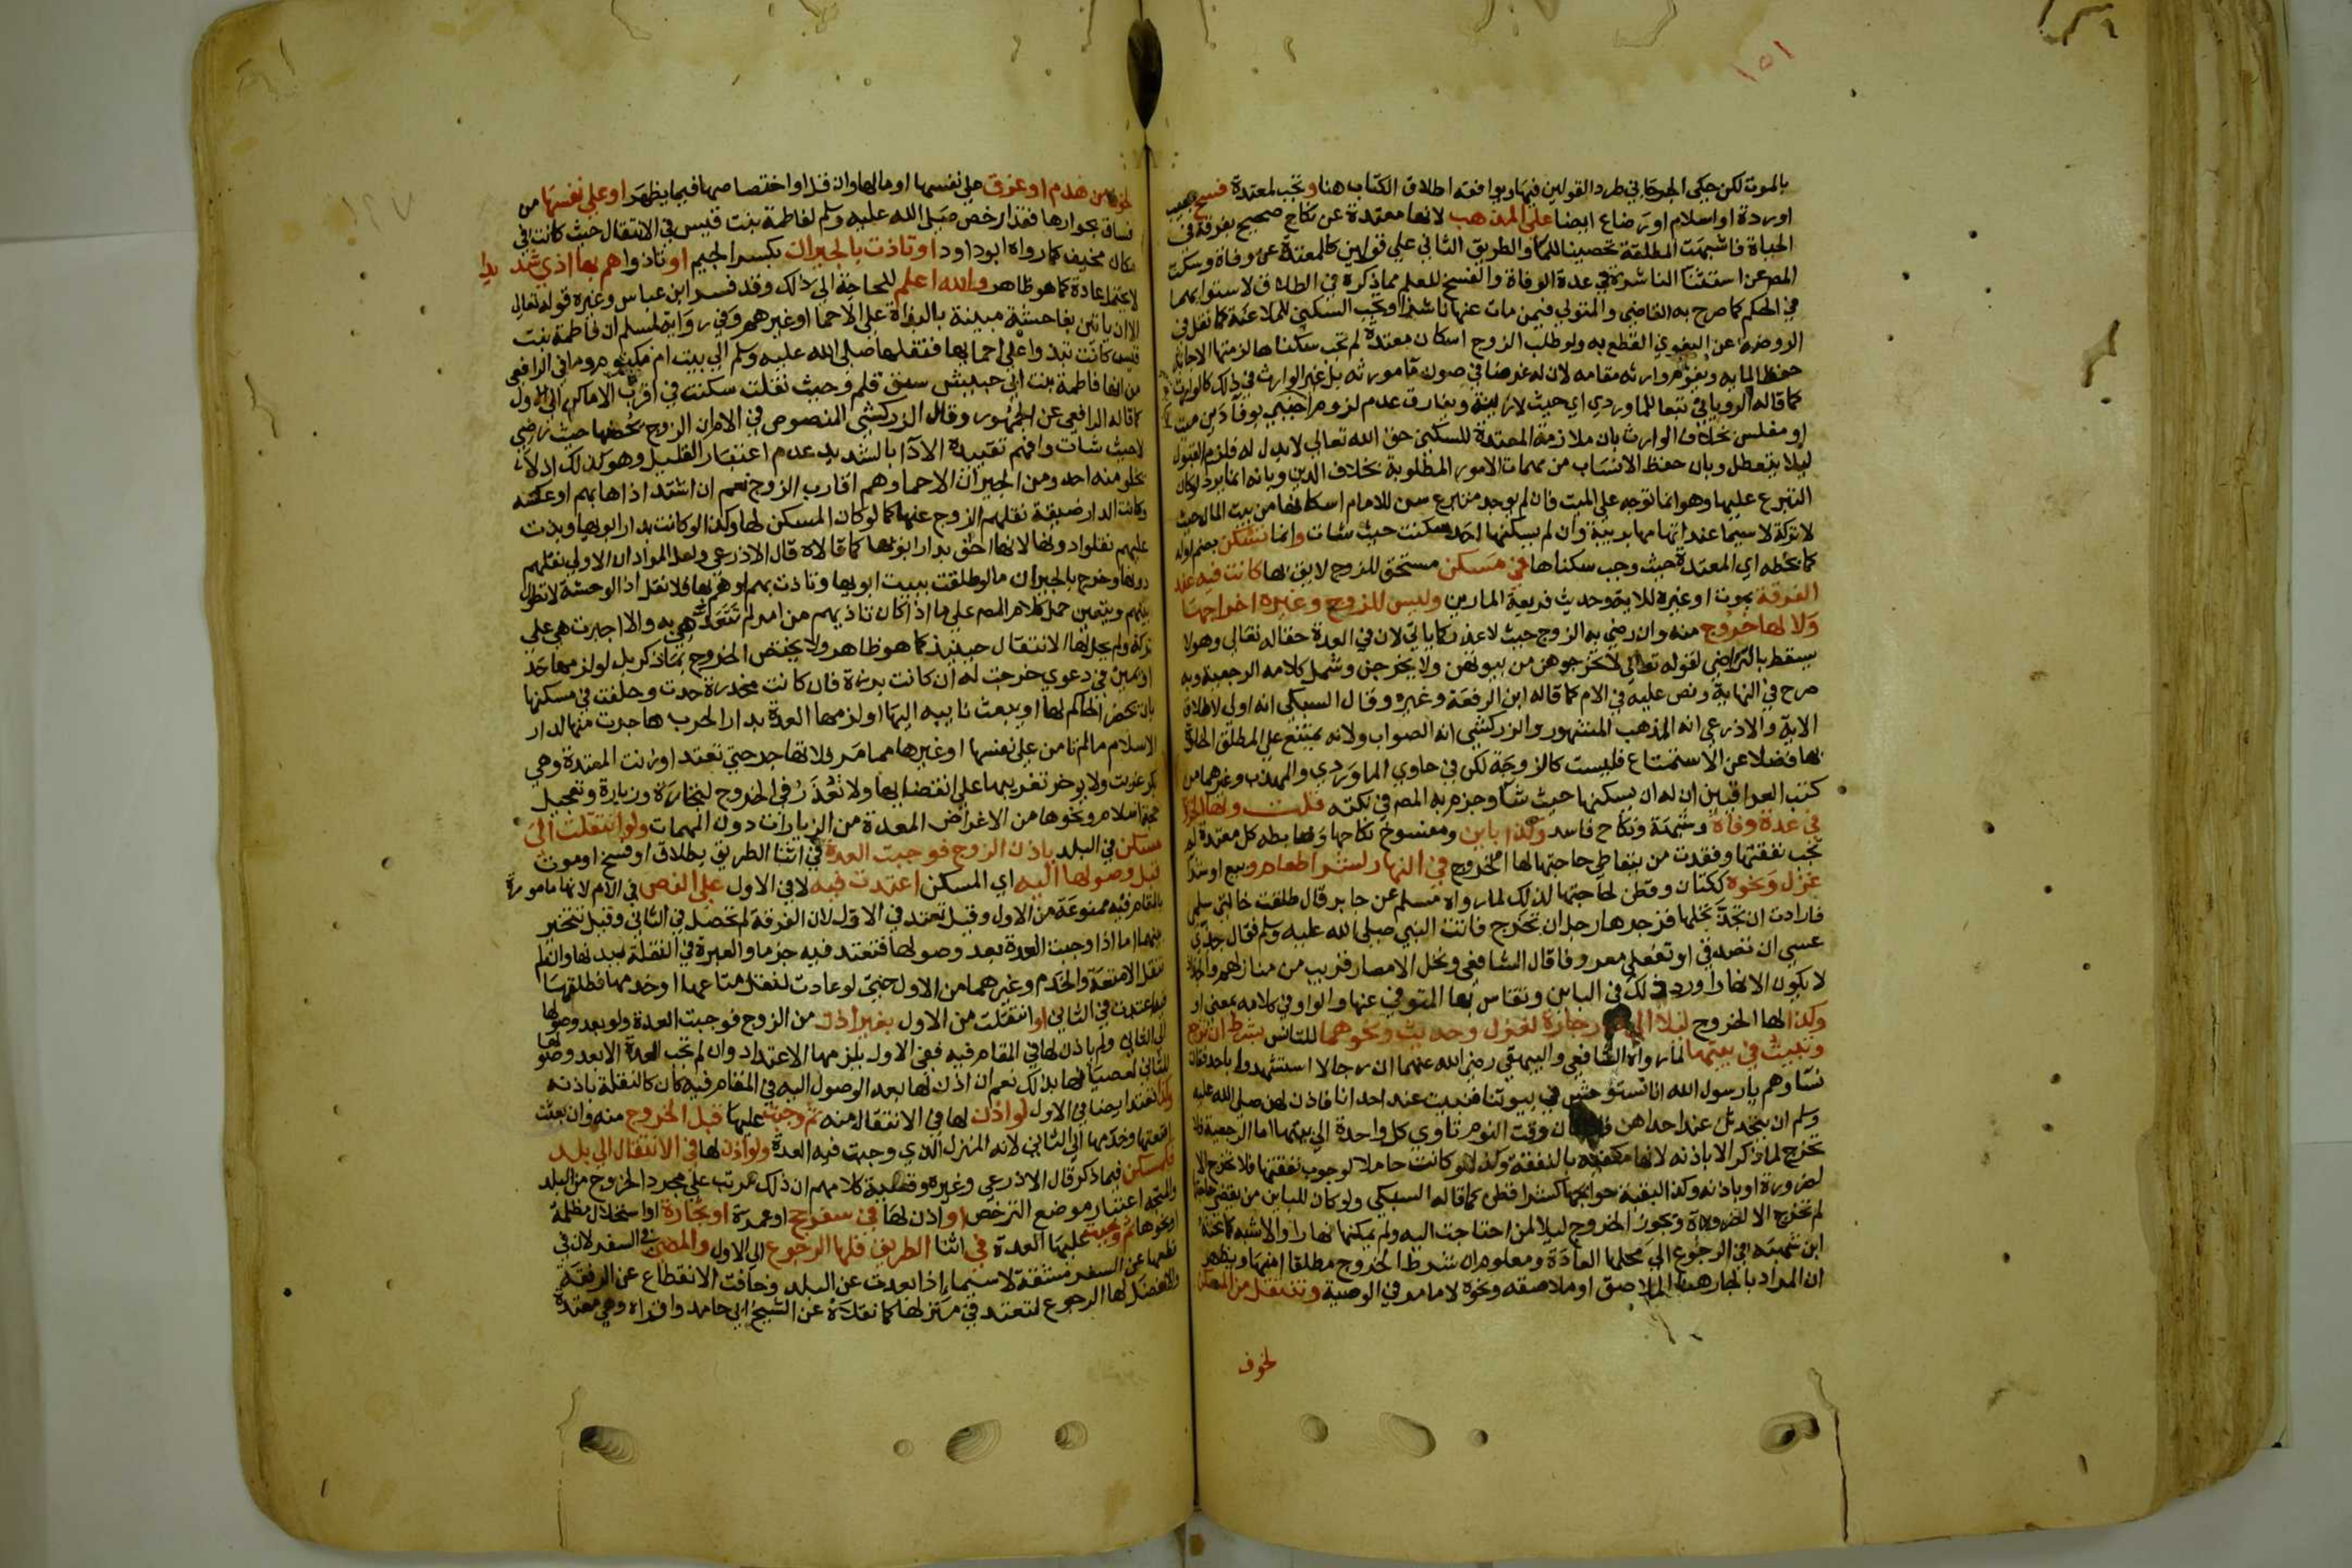 ١٥١
بالموت لكن حكى الجرجاني طرد القولين فيها ويوافقه اطلاق الكتاب هنا وتجب لمعتدة فسخ بعيب
اوردة او اسلام او رضاع ايضا على المذهب لانها معتدة عن نكاح صحيح بفرقة في
الحياة فاشبهت المطلقة تحصينا للماء والطريق الثاني على قولين كالمعتدة عن وفاة وسكت
المص عن استثنا الناشزة في عدة الوفاة والفسخ للعلم مما ذكره في الطلاق لاستوائهما
في الحكم كما صرح به القاضي والمتولي فيمن مات عنها ناشزا وتجب السكنى للملاعنة كما نقل في
الروضة عن البغوي القطع به ولو طلب الزوج اسكان معتدة لم تجب سكناها لزمتها الاجابة
حفظا لمايه ويقوم وارثه مقامه لان له غرضا في صون ما مورثه بل غير الوارث في ذلك كالوارث
كما قاله الروياني تبعا للماوردي اي حيث لا ريبة ويفارق عدم لزوم اجنبي بوفا دين ميت
او مفلس بخلاف الوارث بان ملازمة المعتدة للسكنى حق الله تعالى لا بدل له فلزم القبول
ليلا يتعطل وبان حفظ الانساب من مهمات الامور المطلوبة بخلاف الدين وبانه انما يرد لو كان
التبرع عليها وهو انما توجه على الميت فان لم يوجد متبرع سن للامام اسكانها من بيت المال حيث
لا تركة لا سيما عند اتهامها بريبة وان لم يسكنها احد سكنت حيث شات وانما تسكن بضم اوله
كما بخطه اي المعتدة حيث وجب سكناها في مسكن مستحق للزوج لايق بها كانت فيه عند
الفرقة بموت او غيره للاية وحديث فريعة المارين وليس للزوج وغيره اخراجها
ولا لها خروج منه وان رضي به الزوج حيث لا عذر كما ياتي لان في العدة حقا له تعالى وهو لا
يسقط بالتراضي لقوله تعالى لا تخرجوهن من بيوتهن ولا يخرجن وشمل كلامه الرجعية وبه
صرح في النهاية ونص عليه في الام كما قاله ابن الرفعة وغيره وقال السبكي انه اولى لاطلاق
الاية والاذرعي انه المذهب المشهور والزركشي انه الصواب ولانه يمتنع على المطلق الخلوة
بها فضلا عن الاستمتاع فليست كالزوجة لكن في حاوي الماوردي والمهذب وغيرهما من
كتب العراقيين ان له ان يسكنها حيث شا وجزم به المص في نكته قلت ولها الخروج
في عدة وفاة وشبهة ونكاح فاسد وكذا باين ومفسوخ نكاحها وضابطه كل معتدة لم
تجب نفقتها وفقدت من يتعاطى حاجتها لها الخروج في النهار لشرا طعام وبيع او شرا
غزل ونحوه ككتان وقطن لحاجتها لذلك لما رواه مسلم عن جابر قال طلقت خالتي سلمى
فارادت ان تجد نخلها فزجرها رجل ان تخرج فاتت النبي صلى الله عليه وسلم فقال جدي
عسى ان تصدقي او تفعلي معروفا قال الشافعي ونخل الانصار قريب من منازلهم والجداد
لا يكون الا نهارا ورد ذلك في الباين ويقاس بها المتوفى عنها والواو في كلامه بمعنى او
وكذا لها الخروج ليلا الى دار جارة لغزل وحديث ونحوهما للتانس بشرط ان ترجع
وتبيت في بيتها لما رواه الشافعي والبيهقي رضي الله عنهما ان رجالا استشهدوا باحد فقالت
نساوهم يا رسول الله انا نستوحش في بيوتنا فنبيت عند احدانا فاذن لهن صلى الله عليه
وسلم ان يتحدثن عند احداهن فاذا كان وقت النوم تاوي كل واحدة الى بيتها اما الرجعية فلا
تخرج لما ذكر الا باذنه لانها مكفية بالنفقة وكذا لو كانت حاملا لوجوب نفقتها فلا تخرج الا
لضرورة او باذنه وكذا لبقية حوايجها كشرا قطن كما قاله السبكي ولو كان للباين من يقضي حاجتها
لم تخرج الا لضرورة ويجوز الخروج ليلا لمن احتاجت اليه ولم يمكنها نهارا والاشبه كما بحثه
ابن شهبة في الرجوع الى محلها العادة ومعلوم ان شرط الخروج مطلقا امنها ويظهر
ان المراد بالجار هنا الملاصق او ملاصقه ونحوه لا ما مر في الوصية وتنتقل من المسكن
لخوف
لخوف من هدم او غرق على نفسها او مالها وان قل او اختصاصها فيما يظهر او على نفسها من
فساق بجوارها فقد ارخص صلى الله عليه وسلم لفاطمة بنت قيس في الانتقال حيث كانت في
مكان مخيف كما رواه ابو داود او تاذت بالجيران بكسر الجيم او تاذوا هم بها اذي شديدا
لا يحتمل عادة كما هو ظاهر والله اعلم للحاجة الى ذلك وقد فسر ابن عباس وغيره قوله تعالى
الا ان ياتين بفاحشة مبينة بالبذاة على الاحما او غيرهم وفي رواية لمسلم ان فاطمة بنت
قيس كانت تبذوا على احمايها فنقلها صلى الله عليه وسلم الى بيت ام مكتوم وما في الرافعي
من انها فاطمة بنت ابي حبيش سبق قلم وحيث نقلت سكنت في اقرب الاماكن الى الاول
كما قاله الرافعي عن الجمهور وقال الزركشي المنصوص في الام ان الزوج يحصنها حيث رضي
لا حيث شات وافهم تقييده الاذا بالشديد عدم اعتبار القليل وهو كذلك اذ لا
يخلو منه احد ومن الجيران الاحما وهم اقارب الزوج نعم ان اشتد اذاها بهم او عكسه
وكانت الدار ضيقة نقلهم الزوج عنها كما لو كان المسكن لها وكذا لو كانت بدار ابويها وبذت
عليهم نقلوا دونها لانها احق بدار ابويها كما قالاه قال الاذرعي ولعل المراد ان الاولى نقلهم
دونها وخرج بالجيران ما لو طلقت ببيت ابويها وتاذت بهم او هم بها فلا نقل اذ الوحشة لا تطول
بينهم ويتعين حمل كلام المص على ما اذا كان تاذيهم من امر لم تتعد هي به والا اجبرت هي على
تركه ولم يحل لها الانتقال حينيذ كما هو ظاهر ولا يختص الخروج بما ذكر بل لو لزمها حد
او يمين في دعوى خرجت له ان كانت برزة فان كانت مخدرة حدت وحلفت في مسكنها
بان يحضر الحاكم لها او يبعث نايبه اليها او لزمها العدة بدار الحرب هاجرت منها لدار
الاسلام ما لم تامن على نفسها او غيرها مما مر فلا تهاجر حتى تعتد او زنت المعتدة وهي
بكر غربت ولا يوخر تغريبها على انقضايها ولا تعذر في الخروج لتجارة وزيارة وتعجيل
حجة اسلام ونحوها من الاغراض المعدة من الزيارات دون المهمات ولو انتقلت الى
مسكن في البلد باذن الزوج فوجبت العدة في اثنا الطريق بطلاق او فسخ او موت
قبل وصولها اليه اي المسكن اعتدت فيه لا في الاول على النص في الام لانها مامورة
بالمقام فيه ممنوعة من الاول وقيل تعتد في الاول لان الفرقة لم تحصل في الثاني وقيل تتخير
بينهما اما اذا وجبت العدة بعد وصولها فتعتد فيه جزما والعبرة في النقلة ببدنها وان لم
تنقل الامتعة والخدم وغيرهما من الاول حتى لو عادت لنقل متاعها او خدمها فطلقها
فيه اعتدت في الثاني او انتقلت من الاول بغير اذن من الزوج فوجبت العدة ولو بعد وصولها
الى الثاني ولم ياذن لها في المقام فيه ففي الاول يلزمها الاعتداد وان لم تجب العدة الا بعد وصولها
للثاني لعصيانها بذلك نعم ان اذن لها بعد الوصول اليه في المقام فيه كان كالنقلة باذنه
وكذا تعتد ايضا في الاول لو اذن لها في الانتقال منه ثم وجبت عليها قبل الخروج منه وان بعثت
امتعتها وخدمها الى الثاني لانه المنزل الذي وجبت فيه العدة ولو اذن لها في الانتقال الى بلد
فكمسكن فيما ذكر قال الاذرعي وغيره وقضية كلامهم ان ذلك مرتب على مجرد الخروج من البلد
والمتجه اعتبار موضع الترخص او اذن لها في سفر حج او عمرة او تجارة او استحلال مظلمة
او نحوها ثم وجبت عليها العدة في اثنا الطريق فلها الرجوع الى الاول والمضي في السفر لان في
قطعها عن السفر مشقة لا سيما اذا بعدت عن البلد وخافت الانقطاع عن الرفقة
والافضل لها الرجوع لتعتد في منزلها كما نقلاه عن الشيخ ابي حامد واقراه وهي معتدة